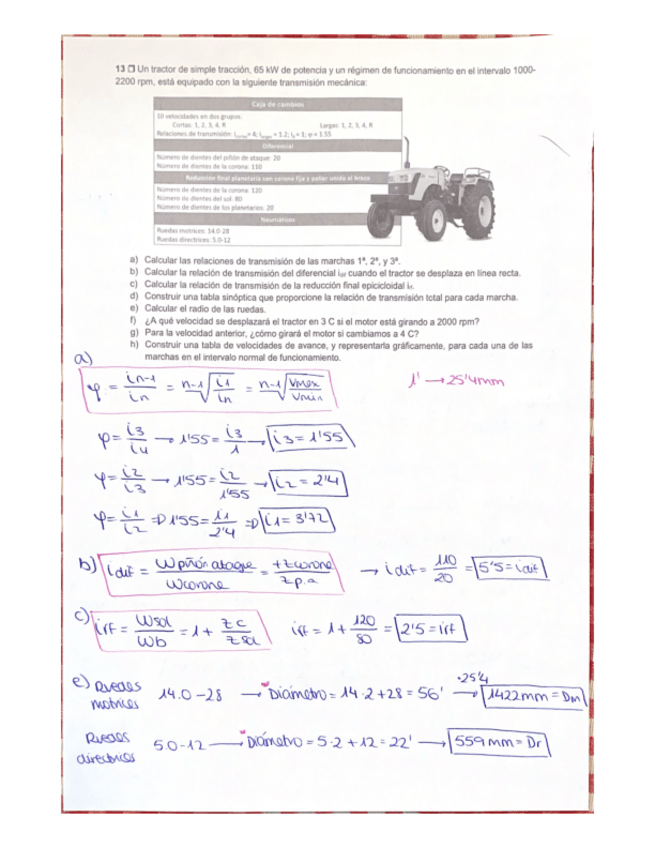 13 ❒ Un tractor de simple tracción, 65 kW de potencia y un régimen de funcionamiento en el intervalo 1000-
2200 rpm, está equipado con la siguiente transmisión mecánica:
Caja de cambios
10 velocidades en dos grupos:
Cortas: 1, 2, 3, 4, R Largas: 1, 2, 3, 4, R
Relaciones de transmisión: i_cortas= 4; i_largas = 1.2; i₄ = 1; φ = 1.55
Diferencial
Número de dientes del piñón de ataque: 20
Número de dientes de la corona: 110
Reducción final planetaria con corona fija y palier unido al brazo
Número de dientes de la corona: 120
Número de dientes del sol: 80
Número de dientes de los planetarios: 20
Neumáticos
Ruedas motrices: 14.0-28
Ruedas directrices: 5.0-12
a) Calcular las relaciones de transmisión de las marchas 1ª, 2ª, y 3ª.
b) Calcular la relación de transmisión del diferencial i_dif cuando el tractor se desplaza en línea recta.
c) Calcular la relación de transmisión de la reducción final epicicloidal i_rf.
d) Construir una tabla sinóptica que proporcione la relación de transmisión total para cada marcha.
e) Calcular el radio de las ruedas.
f) ¿A qué velocidad se desplazará el tractor en 3 C si el motor está girando a 2000 rpm?
g) Para la velocidad anterior, ¿cómo girará el motor si cambiamos a 4 C?
h) Construir una tabla de velocidades de avance, y representarla gráficamente, para cada una de las
marchas en el intervalo normal de funcionamiento.
a)
φ = in-1/in = n-1√(i1/in) = n-1√(Vmax/Vmin) 1' → 25'4mm
φ = i3/i4 → 1'55 = i3/1 → i3 = 1'55
φ = i2/i3 → 1'55 = i2/1'55 → i2 = 2'4
φ = i1/i2 => 1'55 = i1/2'4 => i1 = 3'72
b) idif = Wpiñón ataque/Wcorona = +Zcorona/Zp.a → idif = 110/20 = 5'5 = idif
c) irf = Wsol/Wb = 1 + Zc/Zsol irf = 1 + 120/80 = 2'5 = irf
e) Ruedas motrices 14.0-28 → Diámetro = 14·2+28 = 56' ·25'4 → 1422mm = Dm
Ruedas directrices 5.0-12 → Diámetro = 5·2+12 = 22' → 559mm = Dr